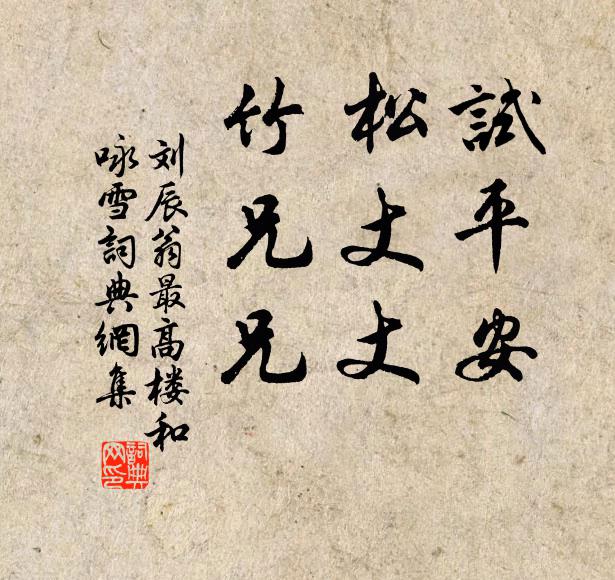 試平安
松丈丈
竹兄兄
刘辰翁最高楼和
咏雪詞典網集
詞典网印